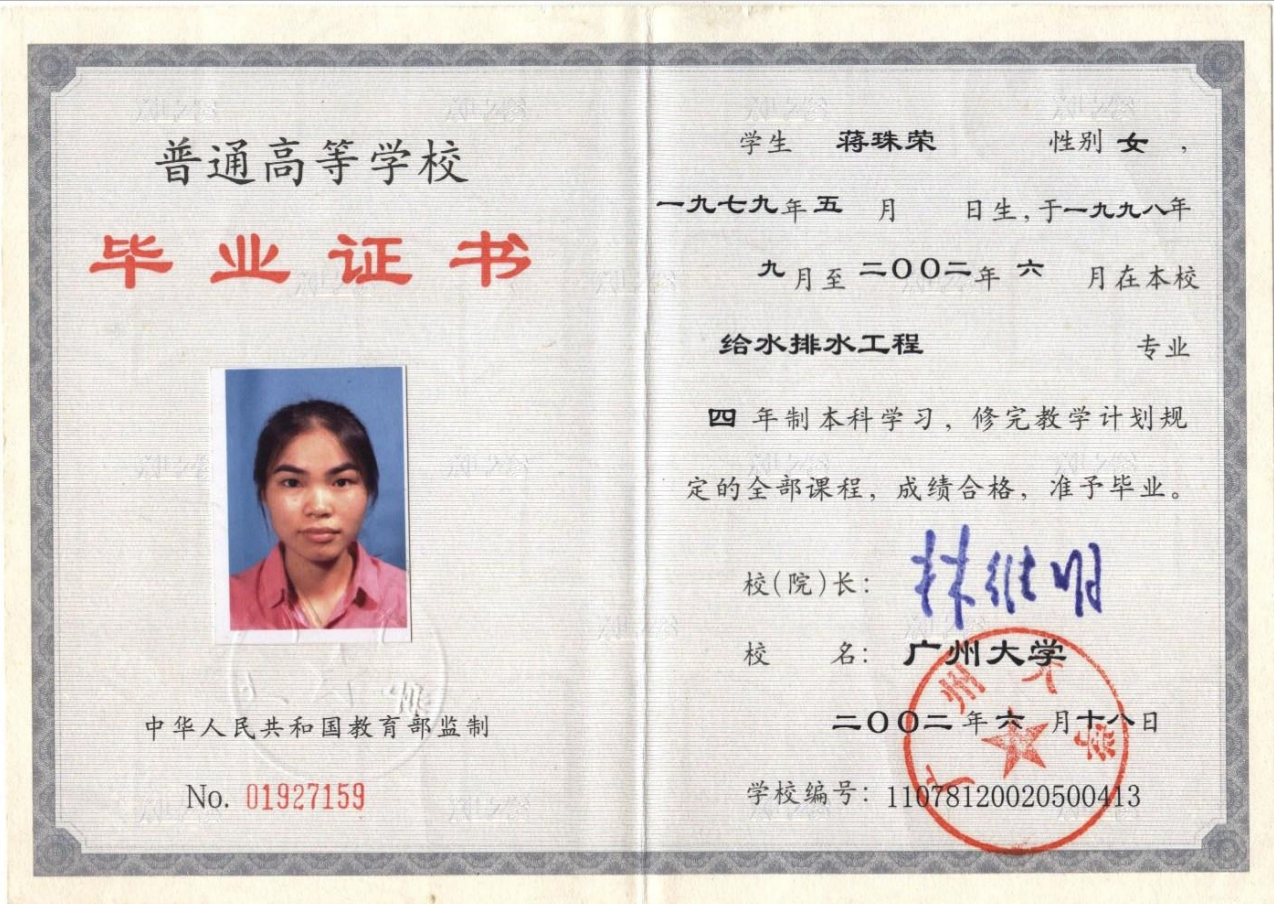 普通高等学校
毕业证书
中华人民共和国教育部监制
No. 01927159
学生 蒋珠荣 性别 女 ,
一九七九年五月 日生, 于一九九八年
九月至二〇〇二年 六 月在本校
给水排水工程 专业
四 年制本科学习, 修完教学计划规
定的全部课程, 成绩合格, 准予毕业。
校(院)长: 林维明
校 名: 广州大学
二〇〇二年六月十八日
学校编号: 11078120020500413
广州大学